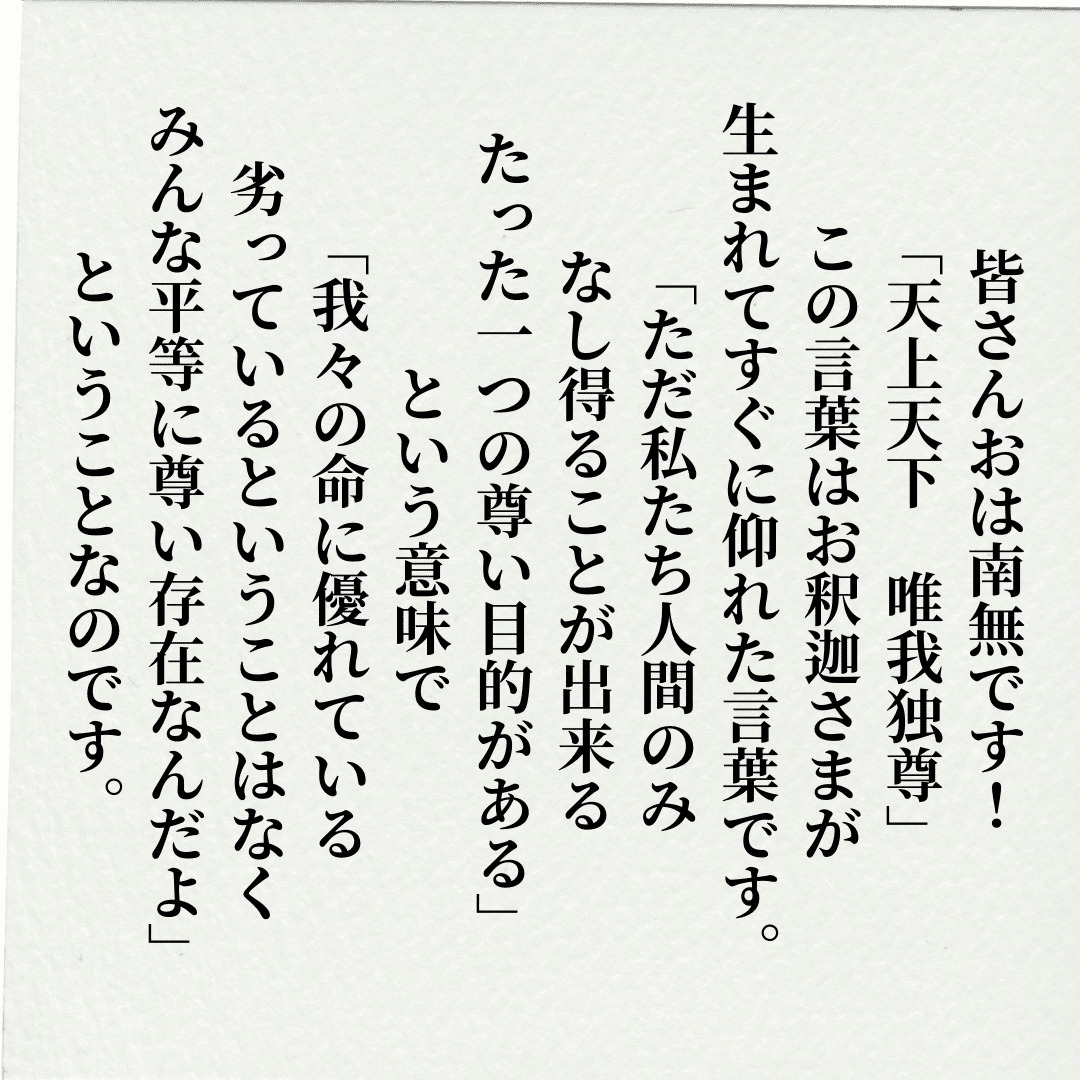 皆さんおは南無です！
「天上天下　唯我独尊」
この言葉はお釈迦さまが
生まれてすぐに仰れた言葉です。
「ただ私たち人間のみ
なし得ることが出来る
たった一つの尊い目的がある」
という意味で
「我々の命に優れている
劣っているということはなく
みんな平等に尊い存在なんだよ」
ということなのです。